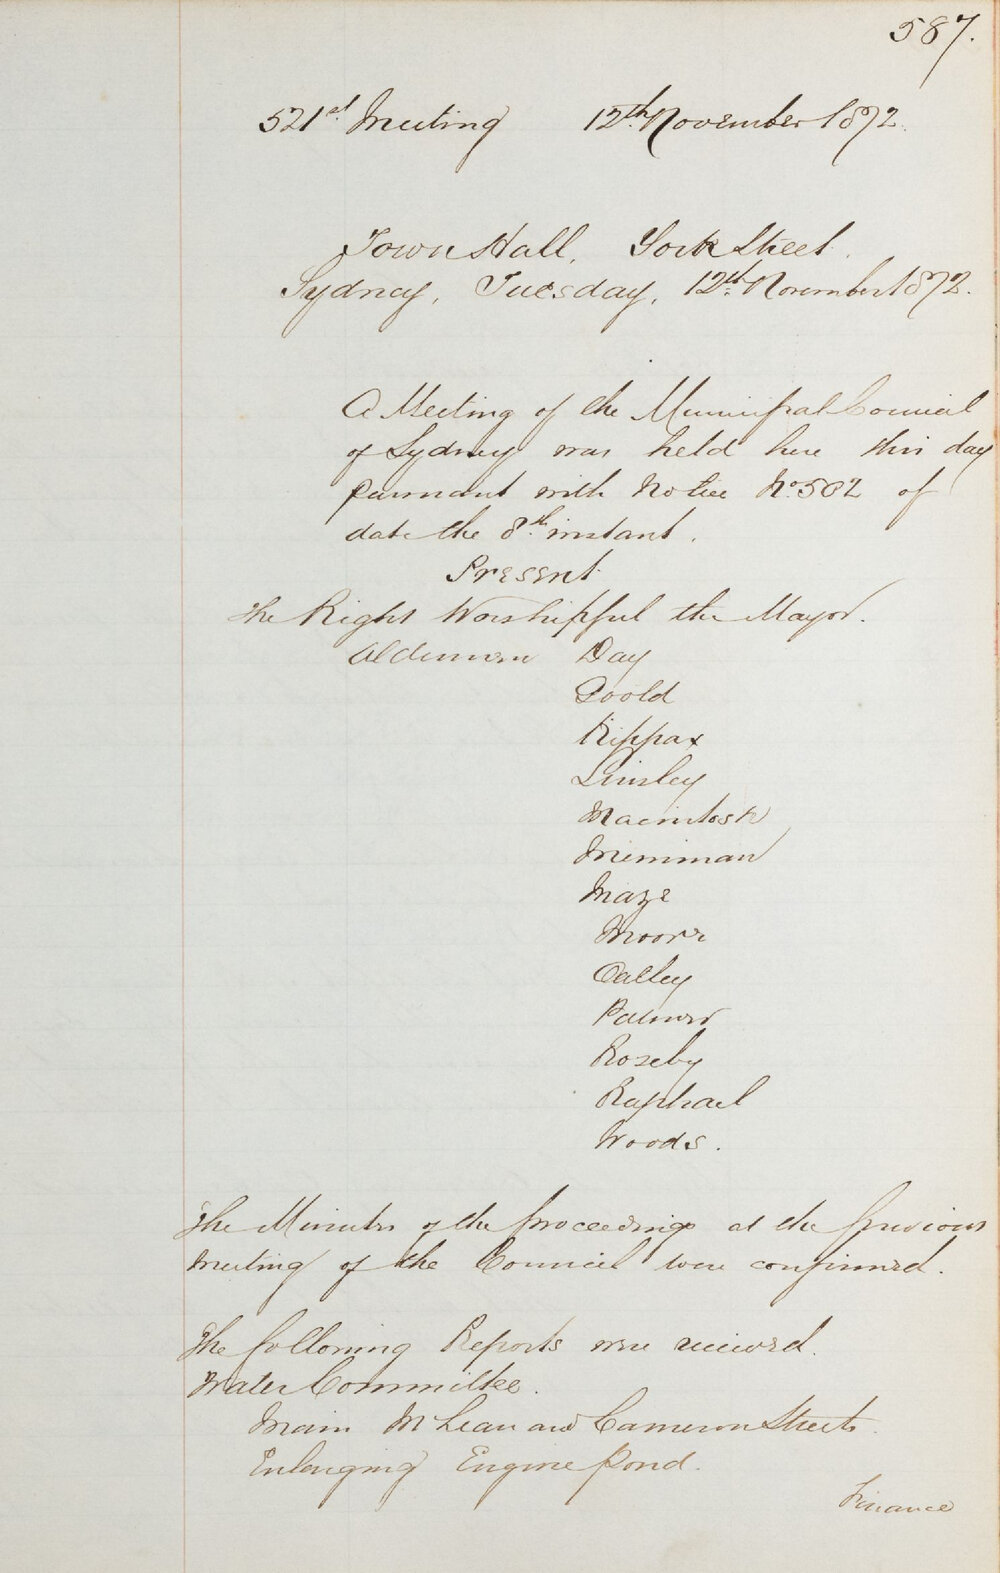 587.
521st Meeting 12th November 1872.
Town Hall, York Street.
Sydney, Tuesday, 12th November 1872.
A Meeting of the Municipal Council
of Sydney was held here this day
pursuant with Notice No. 502 of
date the 8th instant.
Present
The Right Worshipful the Mayor.
Aldermen Day
Goold
Kippax
Linsley
Macintosh
Merriman
Maze
Moore
Oatley
Palmer
Roseby
Raphael
Woods.
The Minutes of the proceedings at the previous
Meeting of the Council were confirmed.
The following Reports were received.
Water Committee.
Main McLean and Cameron Streets.
Enlarging Engine Pond.
Finance